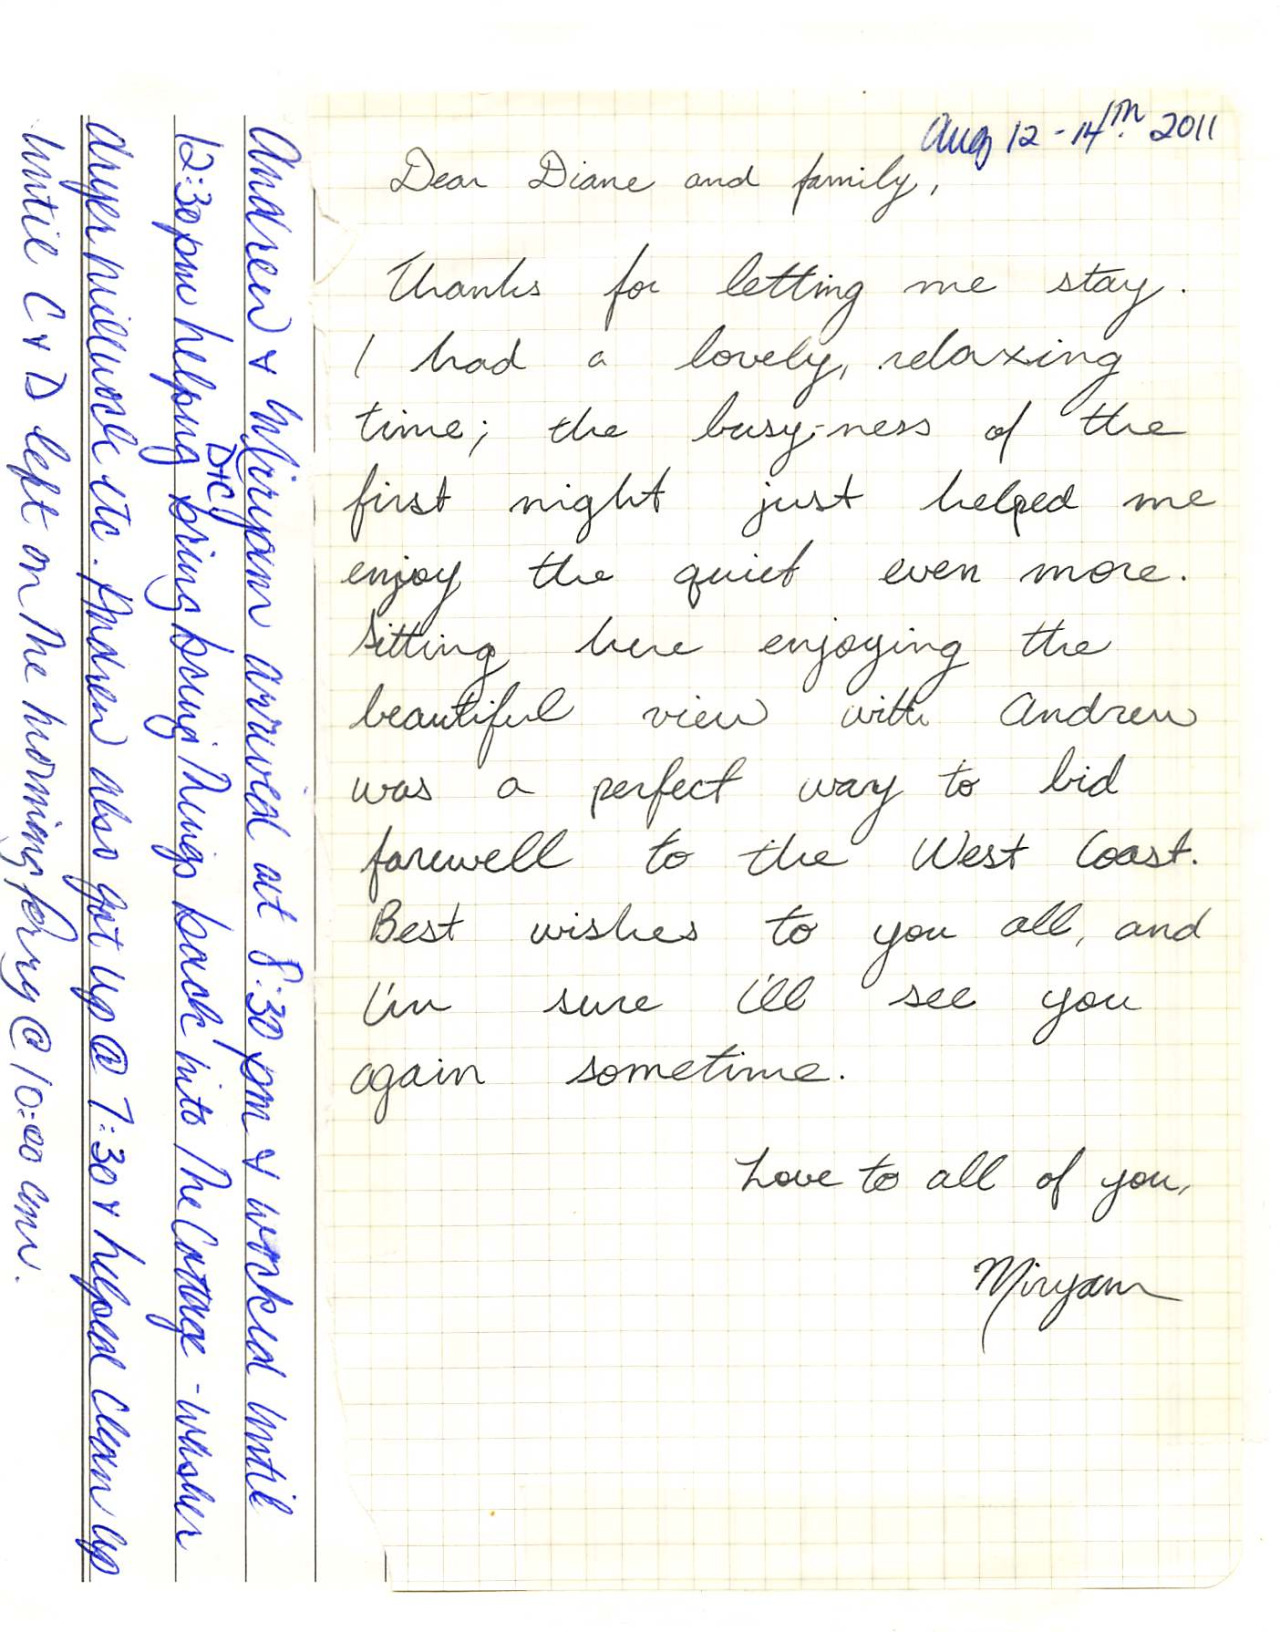 Aug 12 - 14TH. 2011
Dear Diane and family,
Thanks for letting me stay.
I had a lovely, relaxing
time; the busy-ness of the
first night just helped me
enjoy the quiet even more.
Sitting here enjoying the
beautiful view with Andrew
was a perfect way to bid
farewell to the West Coast.
Best wishes to you all, and
I'm sure I'll see you
again sometime.
Love to all of you,
Miryam
Andrew & Miryam arrived at 8:30 pm & worked until
12:30pm helping D+C bring things back into the Cottage - washer
dryer millwork etc. Andrew also got up @ 7:30 & helped clean up
until C & D left on the morning ferry @ 10:00 am.